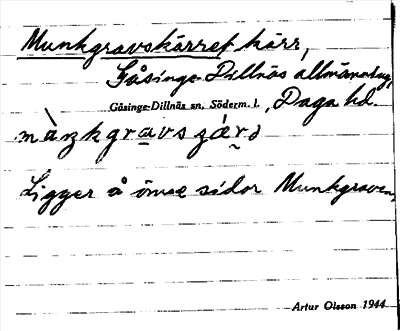 Munkgravskärret kärr,
Gåsinge-Dillnäs allmänning,
Gåsinge-Dillnäs sn, Söderm. l. , Daga hd.
Ligger å ömse sidor Munkgraven,
Artur Olsson 1944